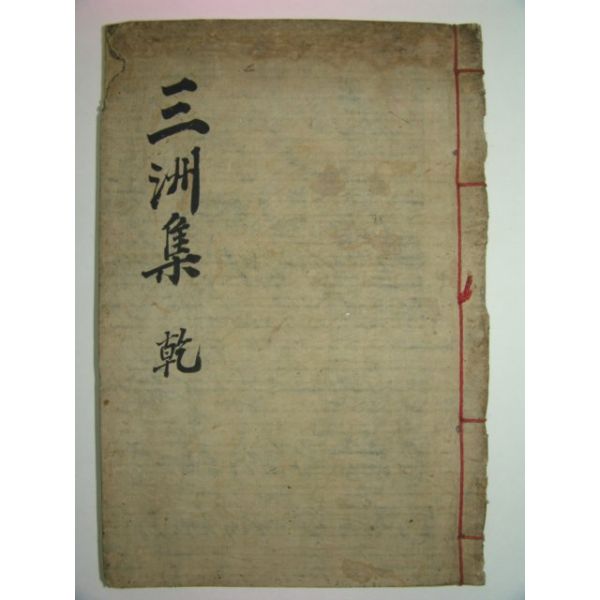 三洲集 乾